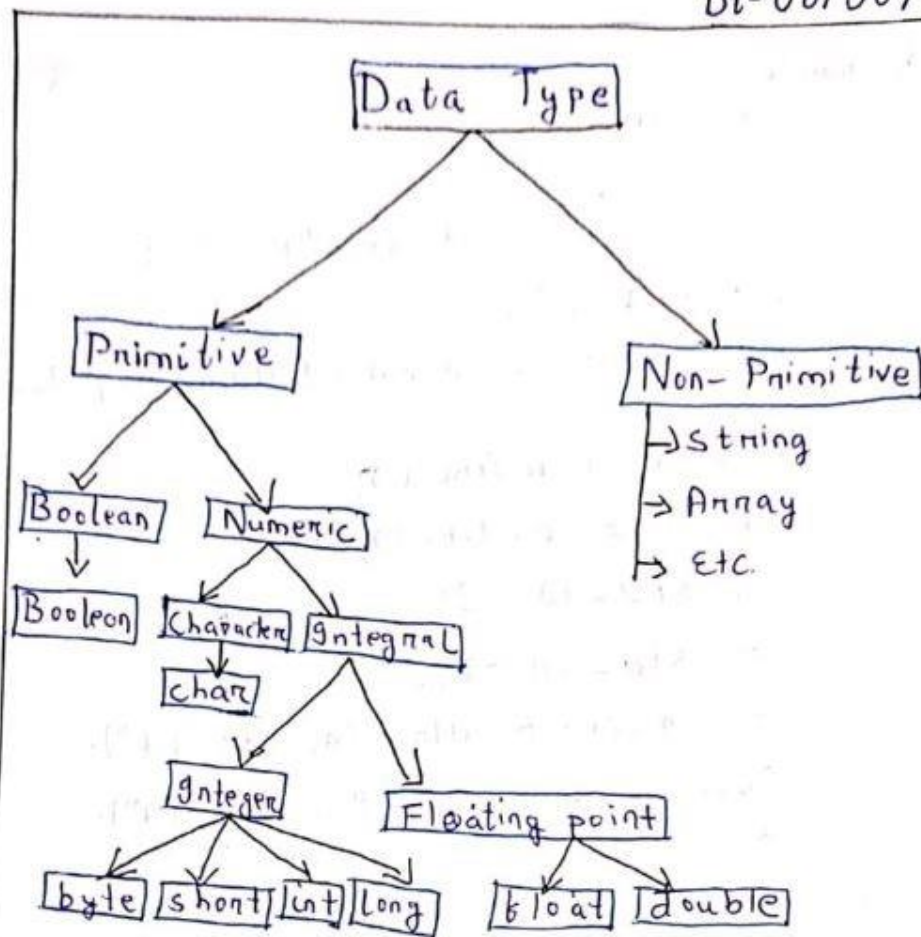 Data Type
Primitive
Non-Primitive
String
Array
Etc.
Boolean
Numeric
Boolean
Character
Integral
char
Integer
Floating point
byte
short
int
long
float
double